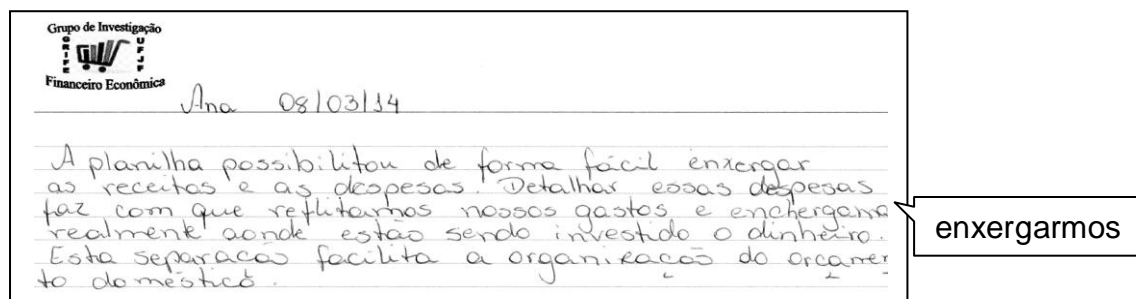 Grupo de Investigação
GRIFE
UFJF
Financeiro Econômica
Ana 08/03/14
A planilha possibilitou de forma fácil enxergar
as receitas e as despesas. Detalhar essas despesas
faz com que reflitamos nossos gastos e enchergama
realmente aonde estão sendo investido o dinheiro.
Esta separação facilita a organização do orçamen
to doméstico.
enxergarmos